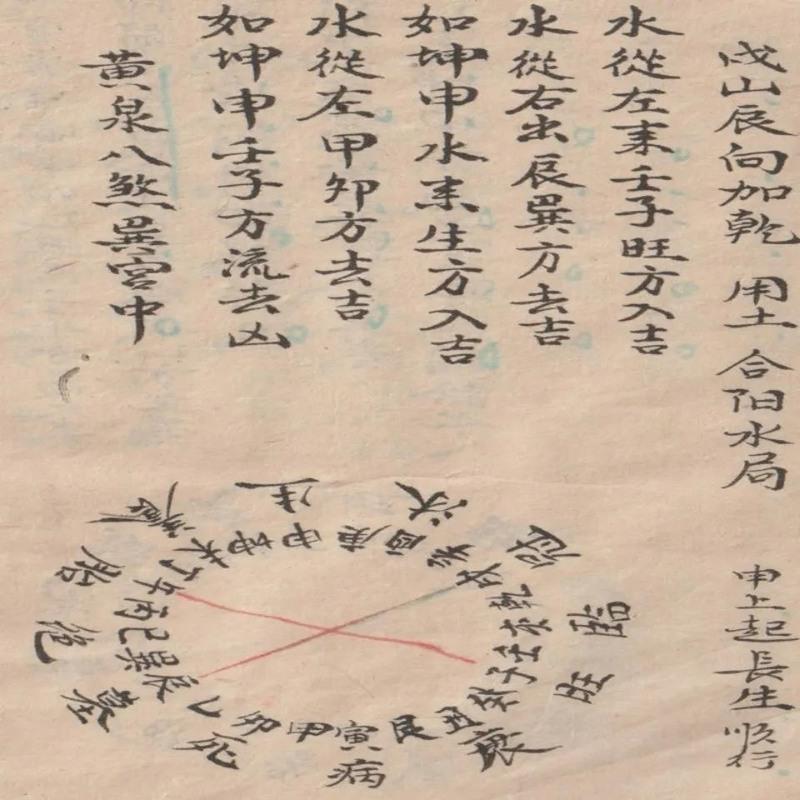 戌山辰向加乾 用土 合阳水局 申上起長生順行
水從左来壬子旺方入吉
水從右出辰巽方去吉
如坤申水来生方入吉
水從左甲卯方去吉
如坤申壬子方流去凶
黄泉八煞巽宫中
生沐冠臨旺衰病死墓绝胎養
申庚酉辛戌乾亥壬子癸丑艮寅甲卯乙辰巽巳丙午丁未坤